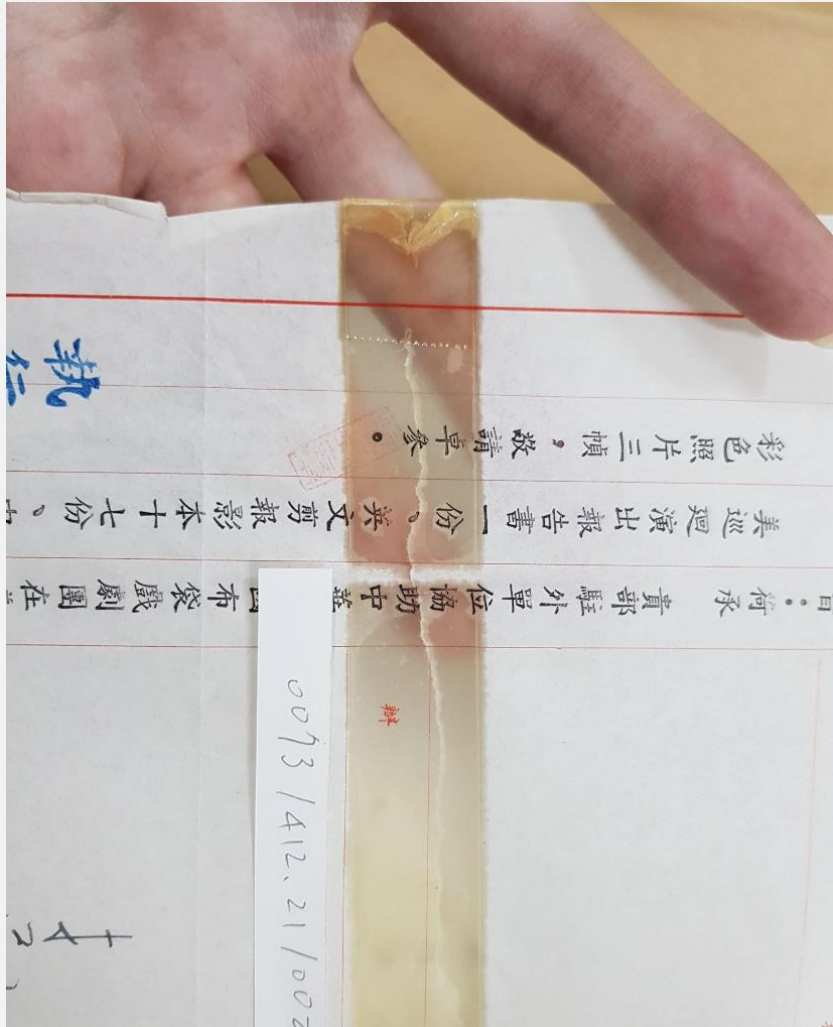 ：荷承　貴部駐外單位協助中
布袋戲劇團在
美巡迴演出報告書一份、英文剪報影本十七份、
彩色照片三幀，敬請卓參。
執行
辦
0073/412.21/002